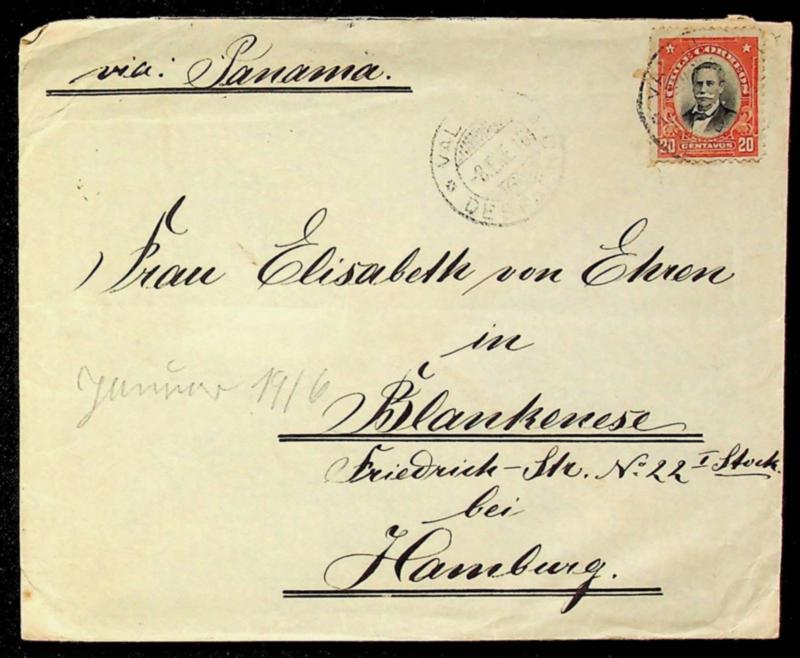 via: Panama.
CHILE CORREOS
20 CENTAVOS 20
VAL
Frau Elisabeth von Ehren
in
Januar 1916
Blankenese
Friedrich-Str. No. 22 I Stock.
bei
Hamburg.